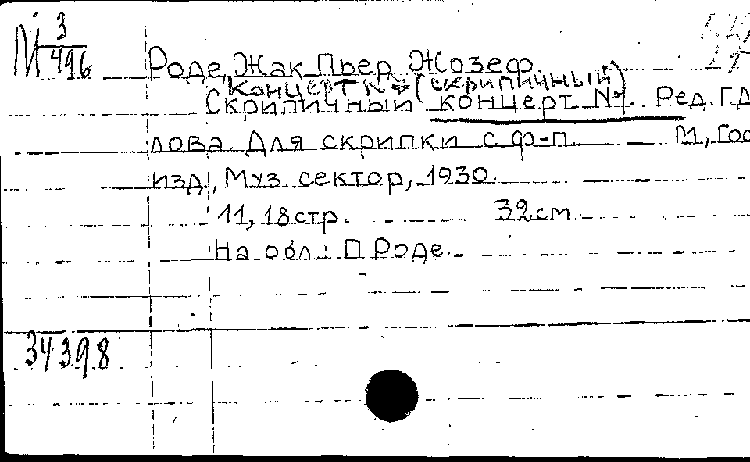 М 3/496
Роде, Жак Пьер Жозеф
Концерт № 7 (скрипичный)
Скрипичный концерт № 7. Ред. Г.Д
лова Для скрипки с ф-п. М, Гос
изд, Муз. сектор, 1930.
11, 18 стр. 32 см
На обл.: П Роде.
34398